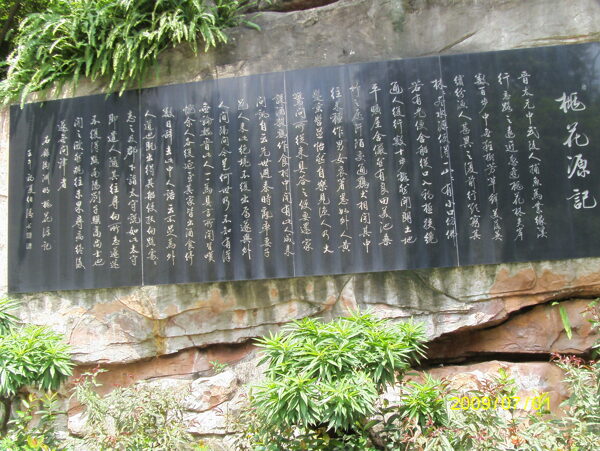 桃花源記
晉太元中武陵人捕魚為業緣溪
行忘路之遠近忽逢桃花林夾岸
數百步中無雜樹芳草鮮美落英
繽紛漁人甚異之復前行欲窮其
林林盡水源便得一山山有小口髣髴
若有光便舍船從口入初極狹纔
通人復行數十步豁然開朗土地
平曠屋舍儼然有良田美池桑
竹之屬阡陌交通雞犬相聞其中
往來種作男女衣著悉如外人黃
髮垂髫並怡然自樂見漁人乃大
驚問所從來具答之便要還家
設酒殺雞作食村中聞有此人咸來
問訊自云先世避秦時亂率妻子
邑人來此絕境不復出焉遂與外
人間隔問今是何世乃不知有漢
無論魏晉此人一一為具言所聞皆嘆
惋餘人各復延至其家皆出酒食停
數日辭去此中人語云不足為外
人道既出得其船便扶向路處處
志之及郡下詣太守說如此太守
即遣人隨其往尋向所志遂迷
不復得路南陽劉子驥高尚士也
聞之欣然規往未果尋病終後
遂無問津者
右錄陶淵明桃花源記
2009/07/01